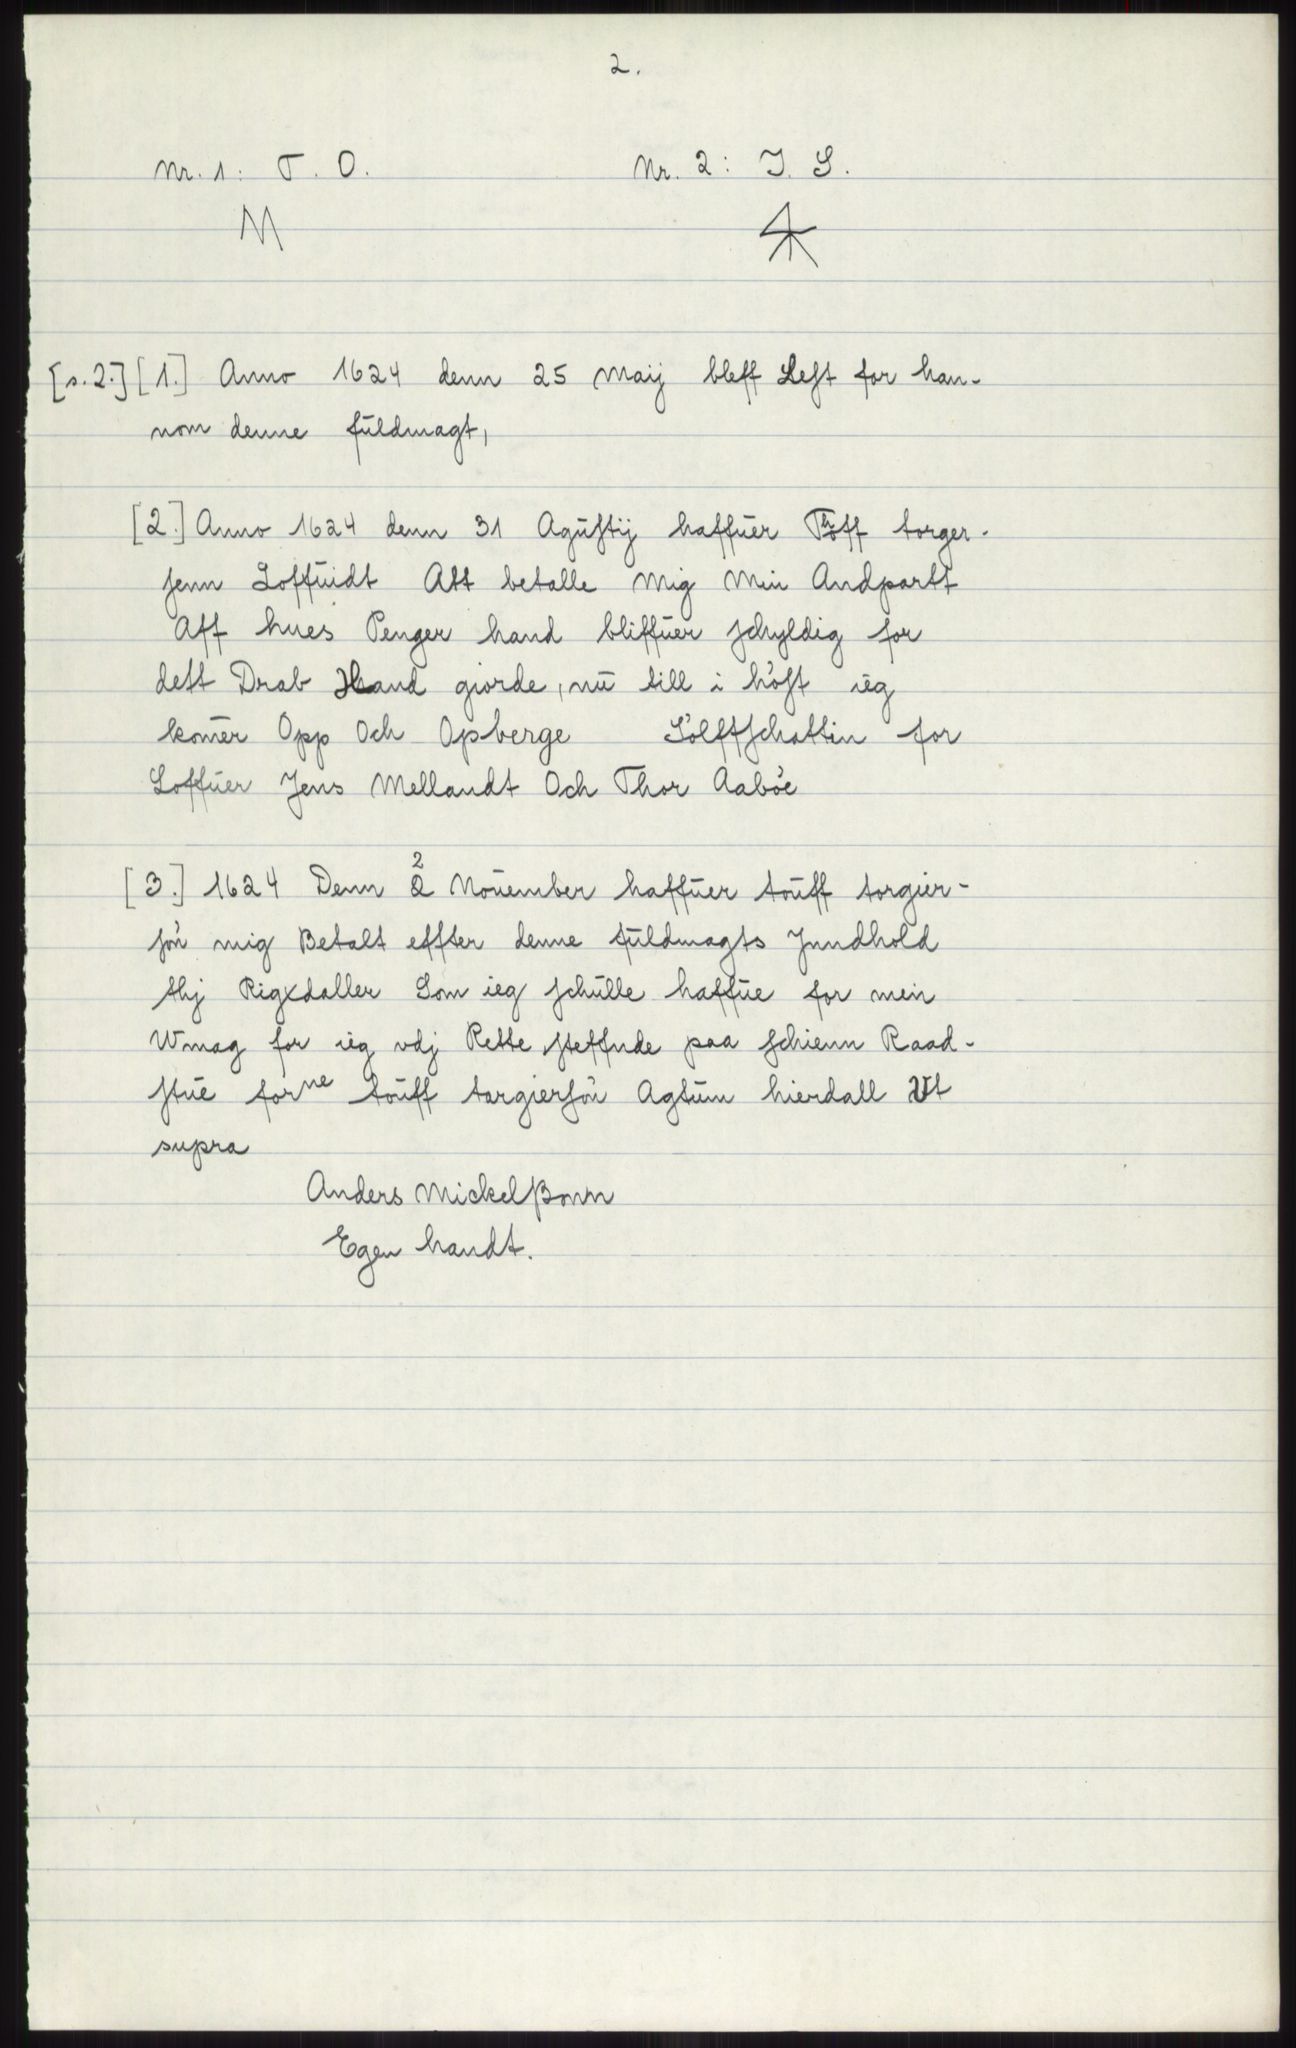 2.
Nr. 1: T. O. Nr. 2: J. S.
[s. 2.] [1.] Anno 1624 denn 25 Maij bleff Lest for han-
nom denne fuldmagt,
[2.] Anno 1624 denn 31 Agustij haffuer torger-
senn Loffuidt Att betalle Mig Min Andpartt
Aff hues Penger hand bliffuer schyldig for
dett Drab Hand giorde, nu till i höst ieg
komer Opp Och Opberge Sölffschattin for
Loffuer Jens Mellandt Och Thor Aaböe
[3.] 1624 Denn 2 Nouember haffuer touff torgier-
sön mig Betalt effter denne fuldmagts Jnndhold
thj Rigxdaller Som ieg schulle haffue for mein
Wmag for ieg vdj Rette steffnde paa schienn Raad-
stue forne touff targiersön Agtum hierdall Vt
supra
Anders Mickelßonn
Egen handt.